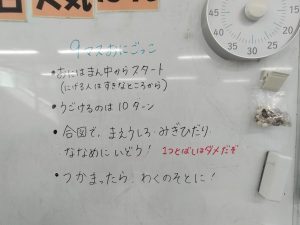 9マスおにごっこ
・おにはまん中からスタート
(にげる人はすきなところから)
・うごけるのは10ターン
・合図で、まえうしろ・みぎひだり
ななめにいどう! 1つとばしはダメだぞ
・つかまったら、わくのそとに!
15
20
25
30
35
40
45